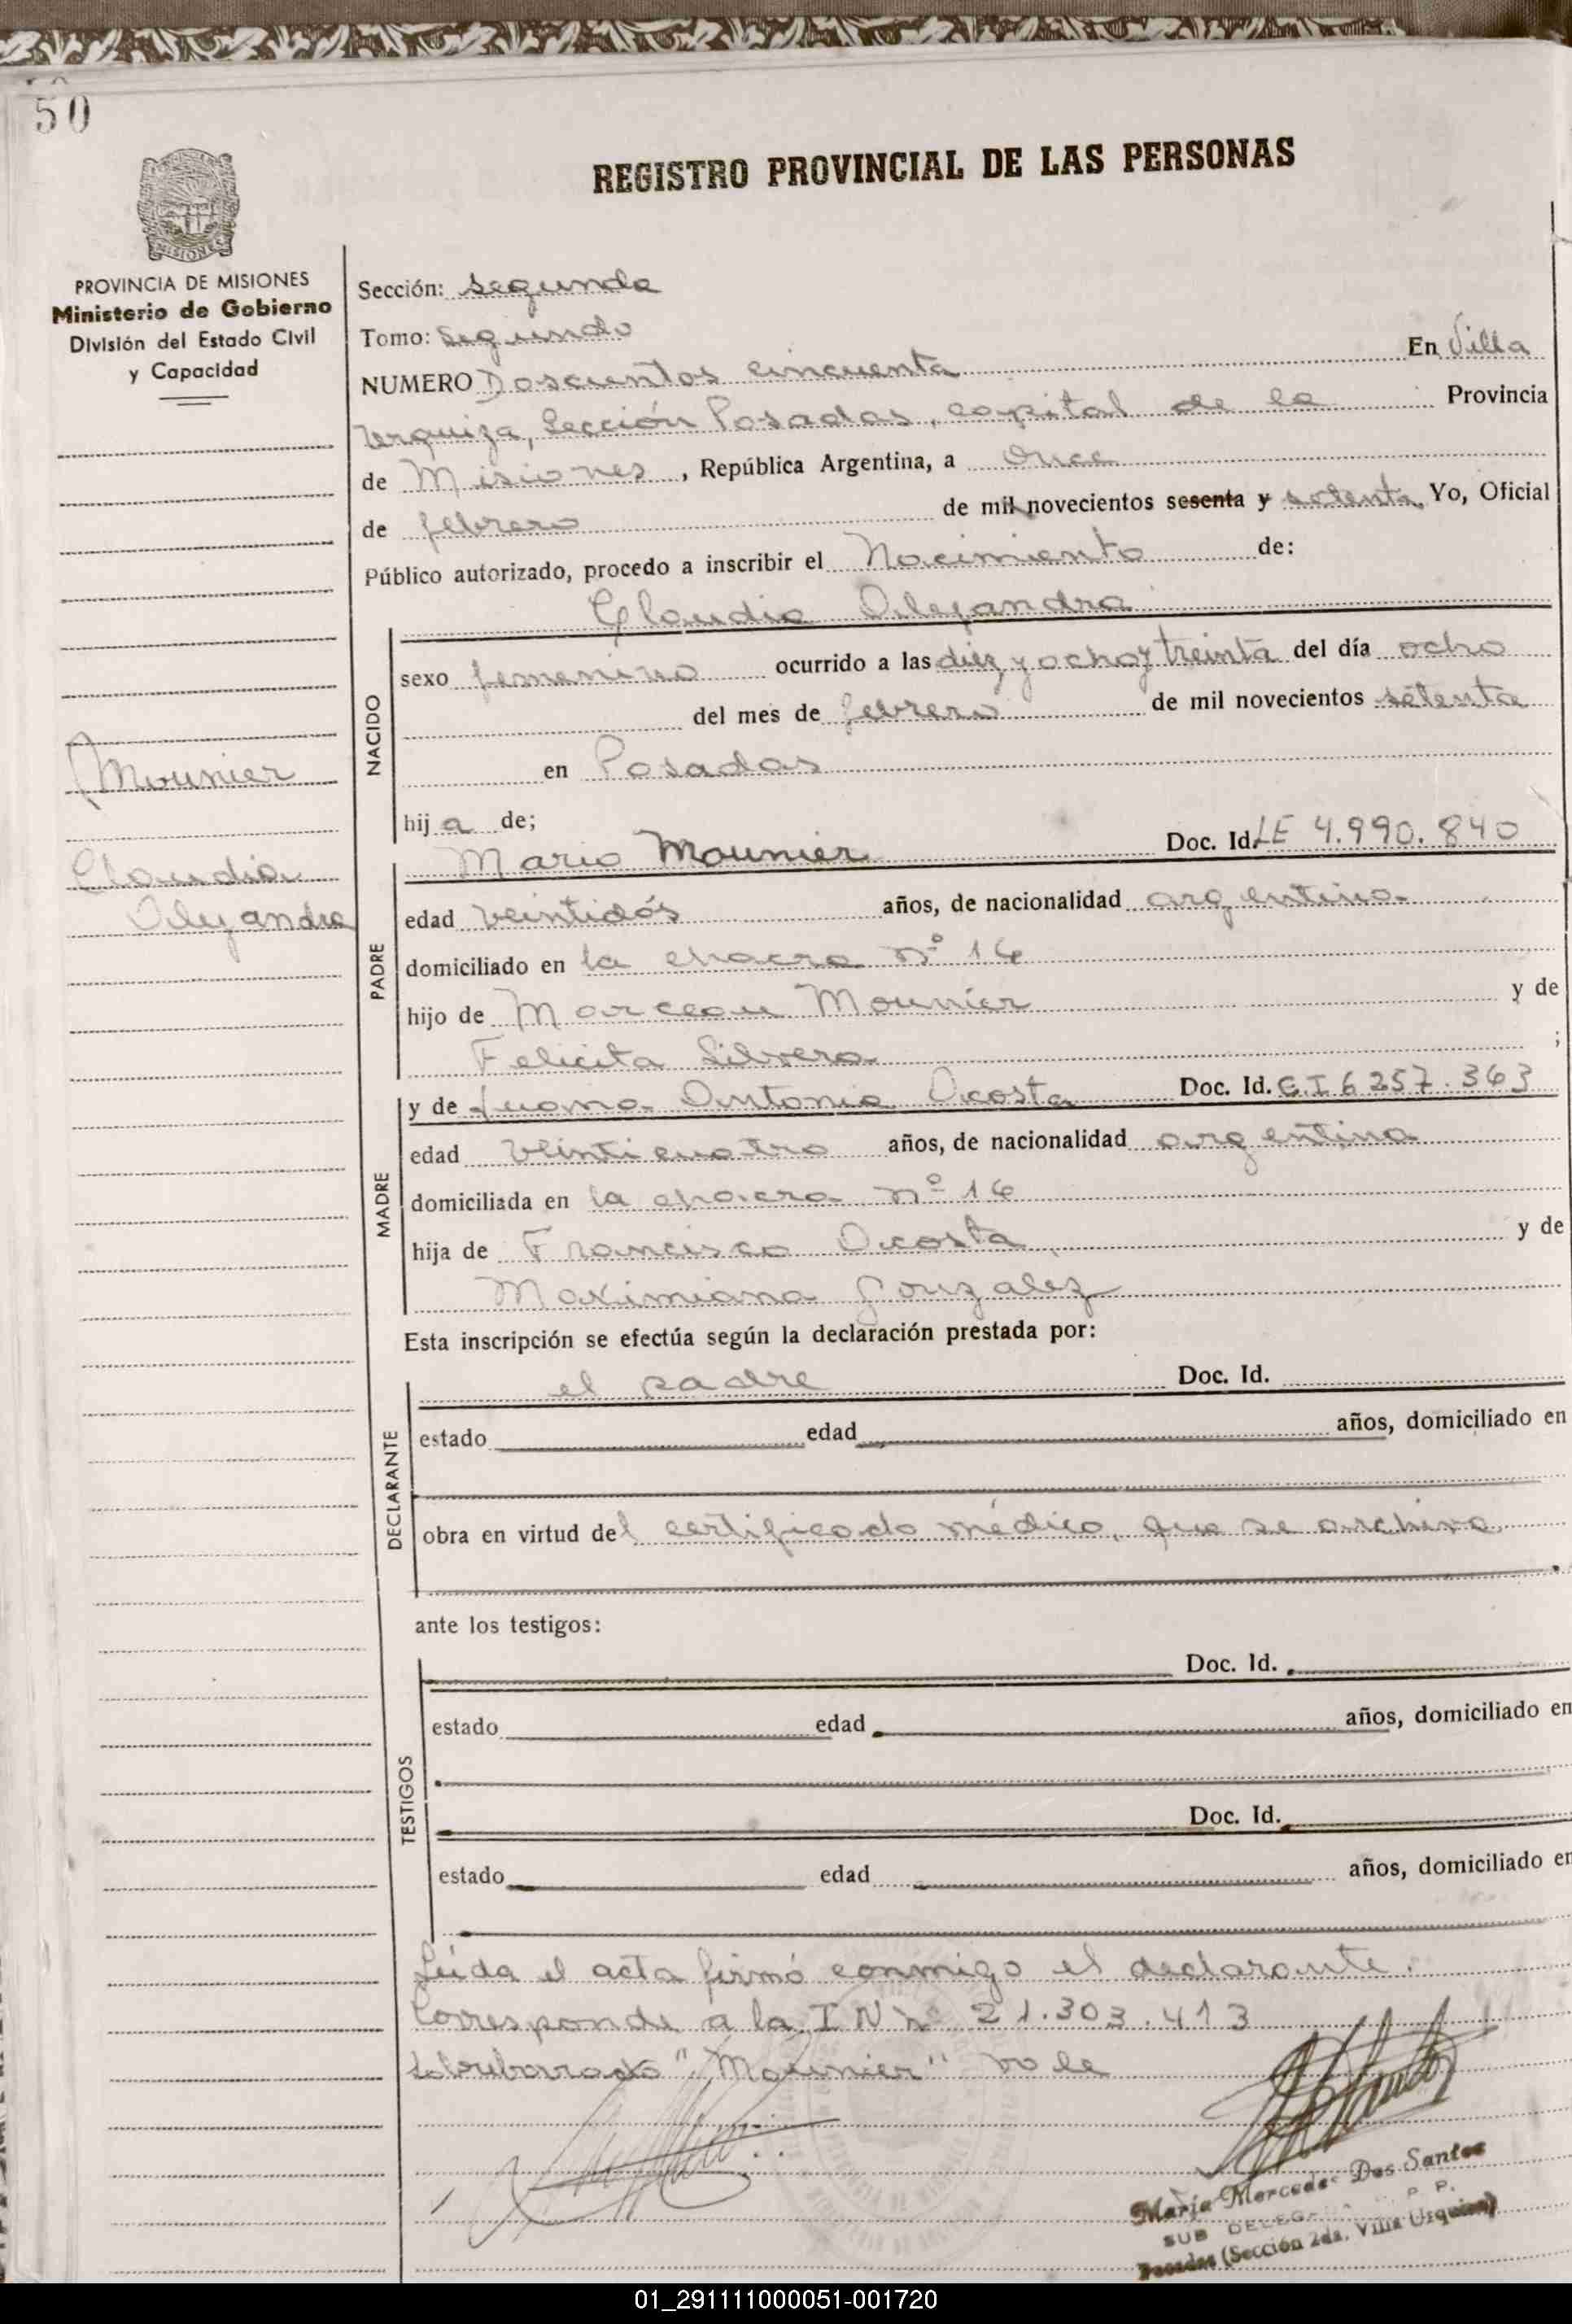 50
REGISTRO PROVINCIAL DE LAS PERSONAS
MISIONES
PROVINCIA DE MISIONES
Ministerio de Gobierno
División del Estado Civil
y Capacidad
Mounier
Claudia
Alejandra
Sección: segunda
Tomo: segundo
NUMERO Doscientos cincuenta En Villa
Urquiza, Sección Posadas, capital de la Provincia
de Misiones, República Argentina, a once
de febrero de mil novecientos sesenta y setenta Yo, Oficial
Público autorizado, procedo a inscribir el Nacimiento de:
Claudia Alejandra
NACIDO
sexo femenino ocurrido a las diez y ocho y treinta del día ocho
del mes de febrero de mil novecientos setenta
en Posadas
hija de;
PADRE
Mario Mounier Doc. Id. LE 4.990.840
edad veintidós años, de nacionalidad argentino
domiciliado en la chacra nº 16
hijo de Marceau Mounier y de
Felicita Silvera ;
MADRE
y de Juana Antonia Acosta Doc. Id. CI 6257.363
edad veinticuatro años, de nacionalidad argentina
domiciliada en la chacra nº 16
hija de Francisco Acosta y de
Maximiana Gonzalez
Esta inscripción se efectúa según la declaración prestada por:
DECLARANTE
el padre Doc. Id.
estado edad años, domiciliado en
obra en virtud del certificado médico, que se archiva
ante los testigos:
TESTIGOS
Doc. Id.
estado edad años, domiciliado en
Doc. Id.
estado edad años, domiciliado en
Leída el acta firmó conmigo el declarante.
Corresponde a la I N nº 21.303.413
sobreborrado "Mounier" vale
María Mercedes Dos Santos
SUB DELEG P. P.
Posadas (Sección 2da. Villa Urquiza)
01_291111000051-001720